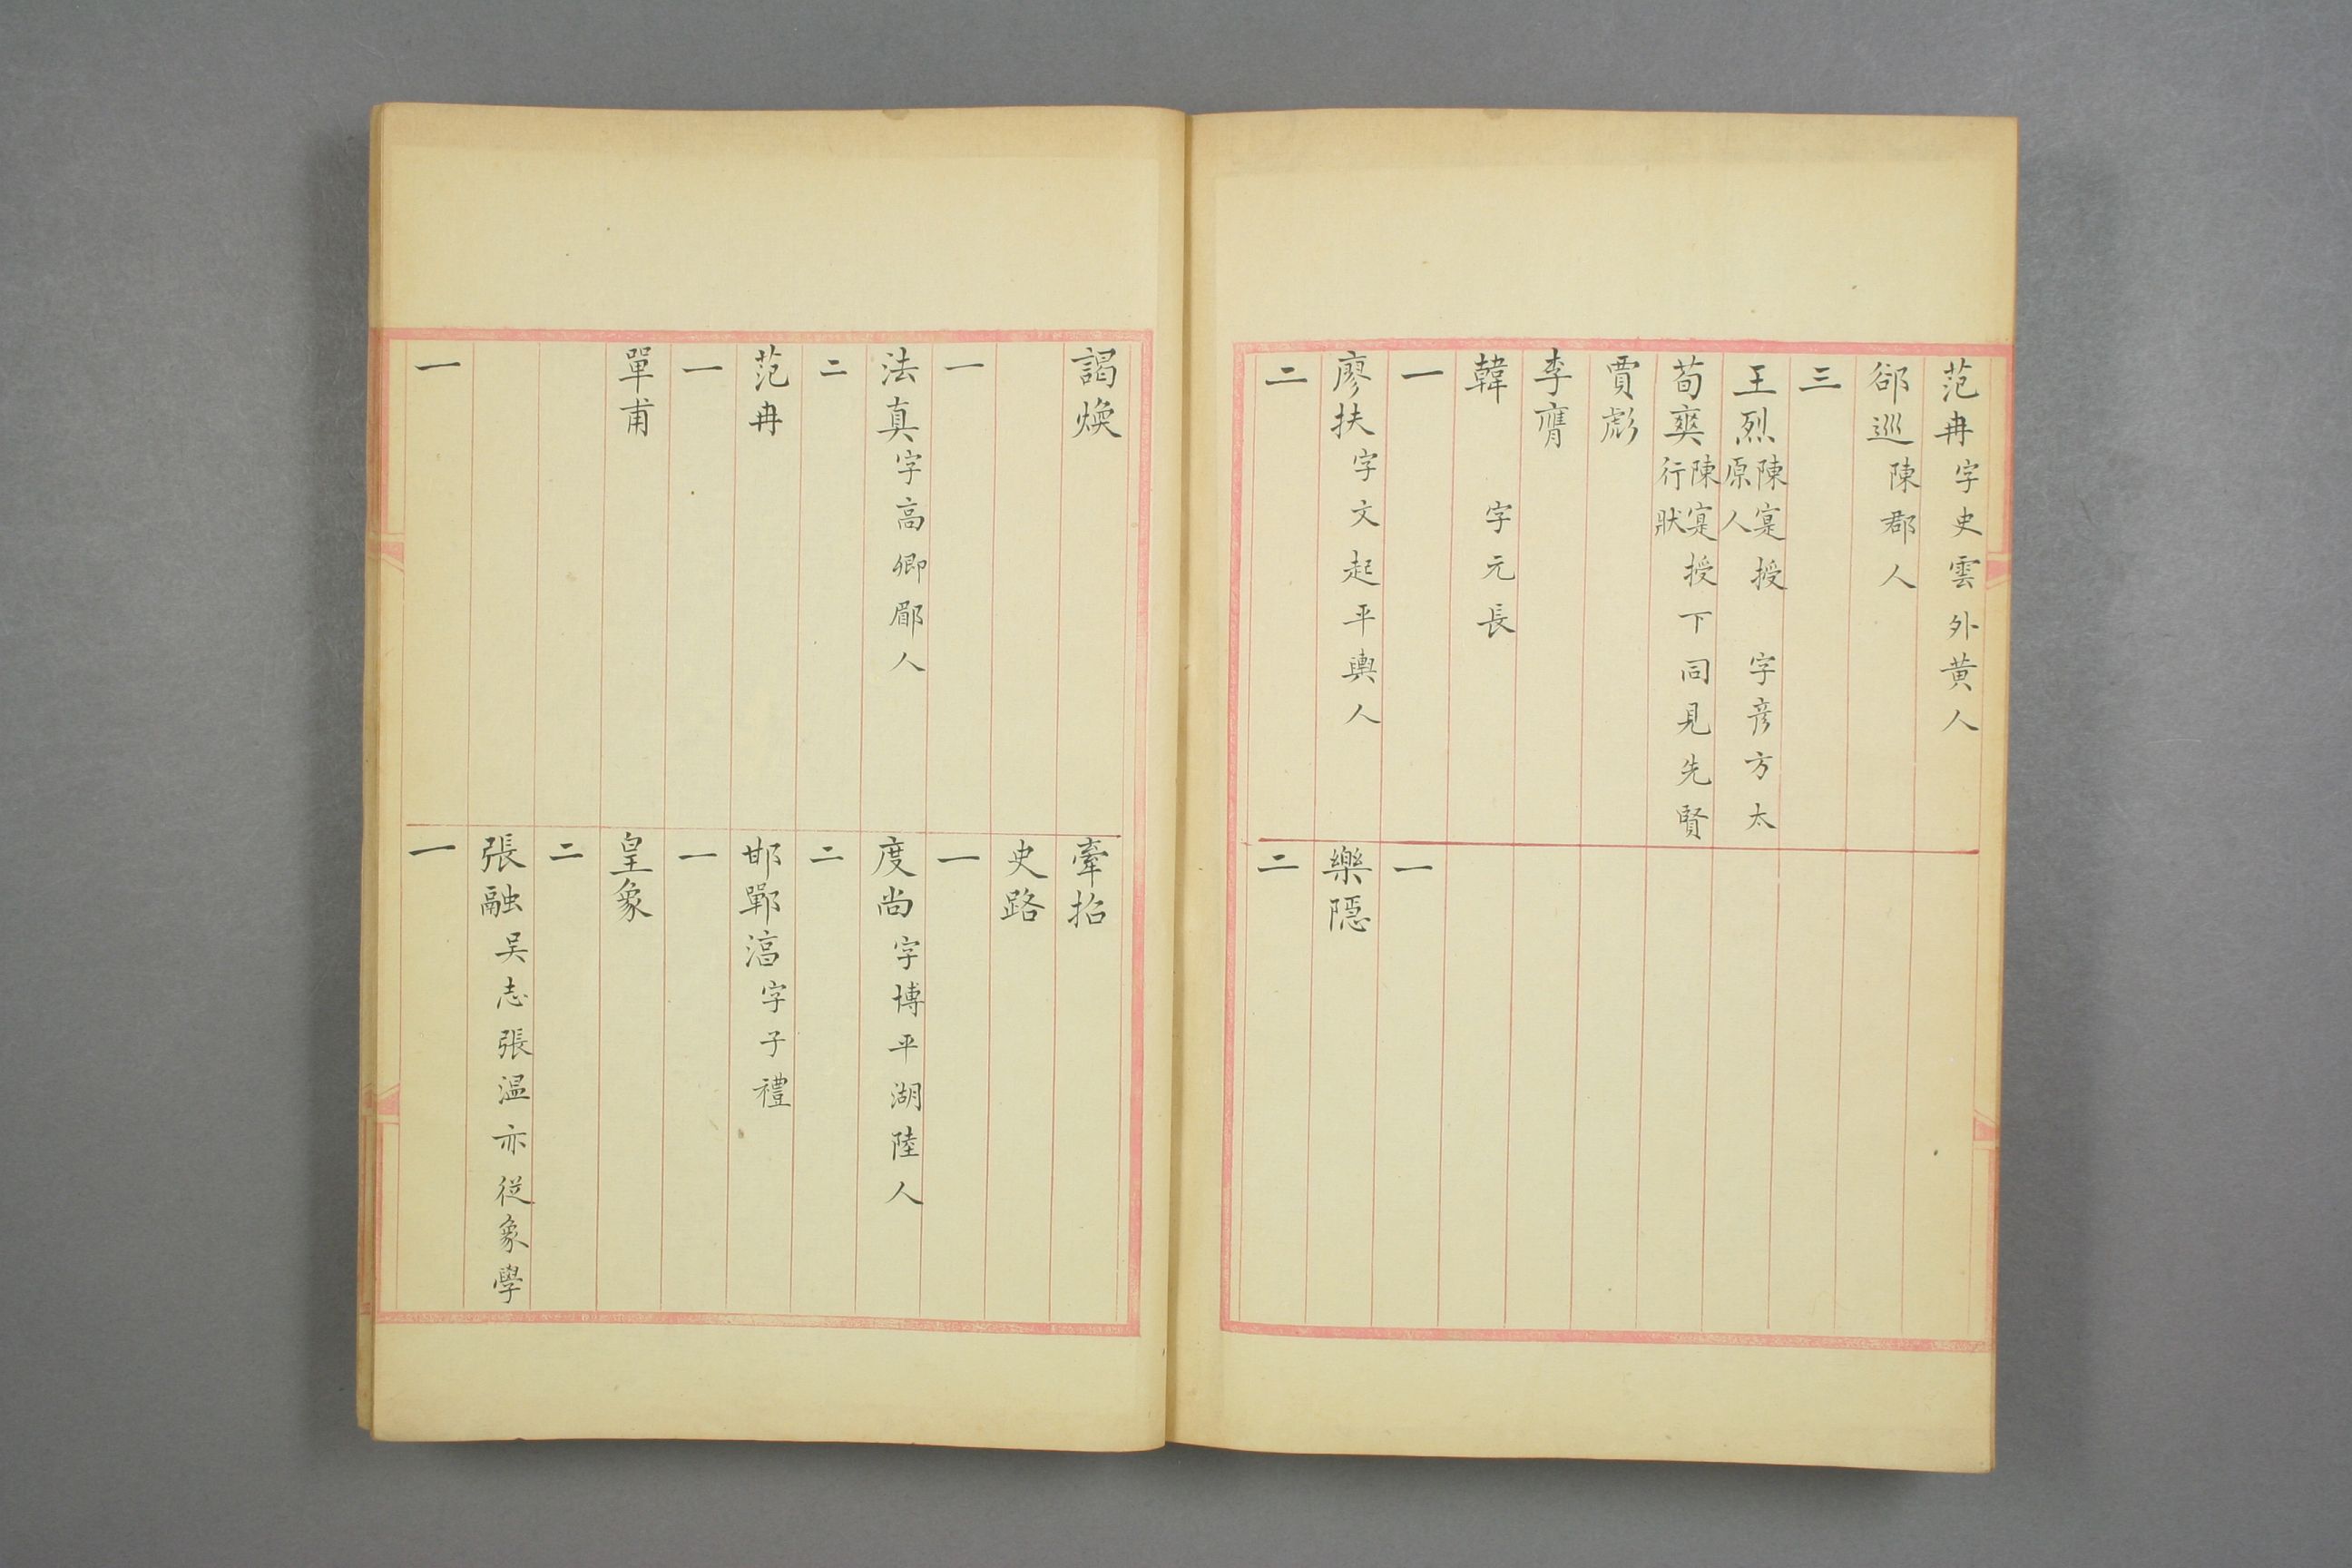 范冉字史雲外黃人
郤巡陳郡人
三
王烈陳寔授 字彥方太原人
荀爽陳寔授下同見先賢行狀
賈彪
李膺
韓 字元長
一
廖扶字文起平輿人
二
一
樂隱
二
謁煥
一
法真字高卿郿人
二
范冉
一
單甫
一
牽招
史路
一
度尚字博平湖陸人
二
邯鄲淳字子禮
一
皇象
二
張融吴志張温亦從象學
一